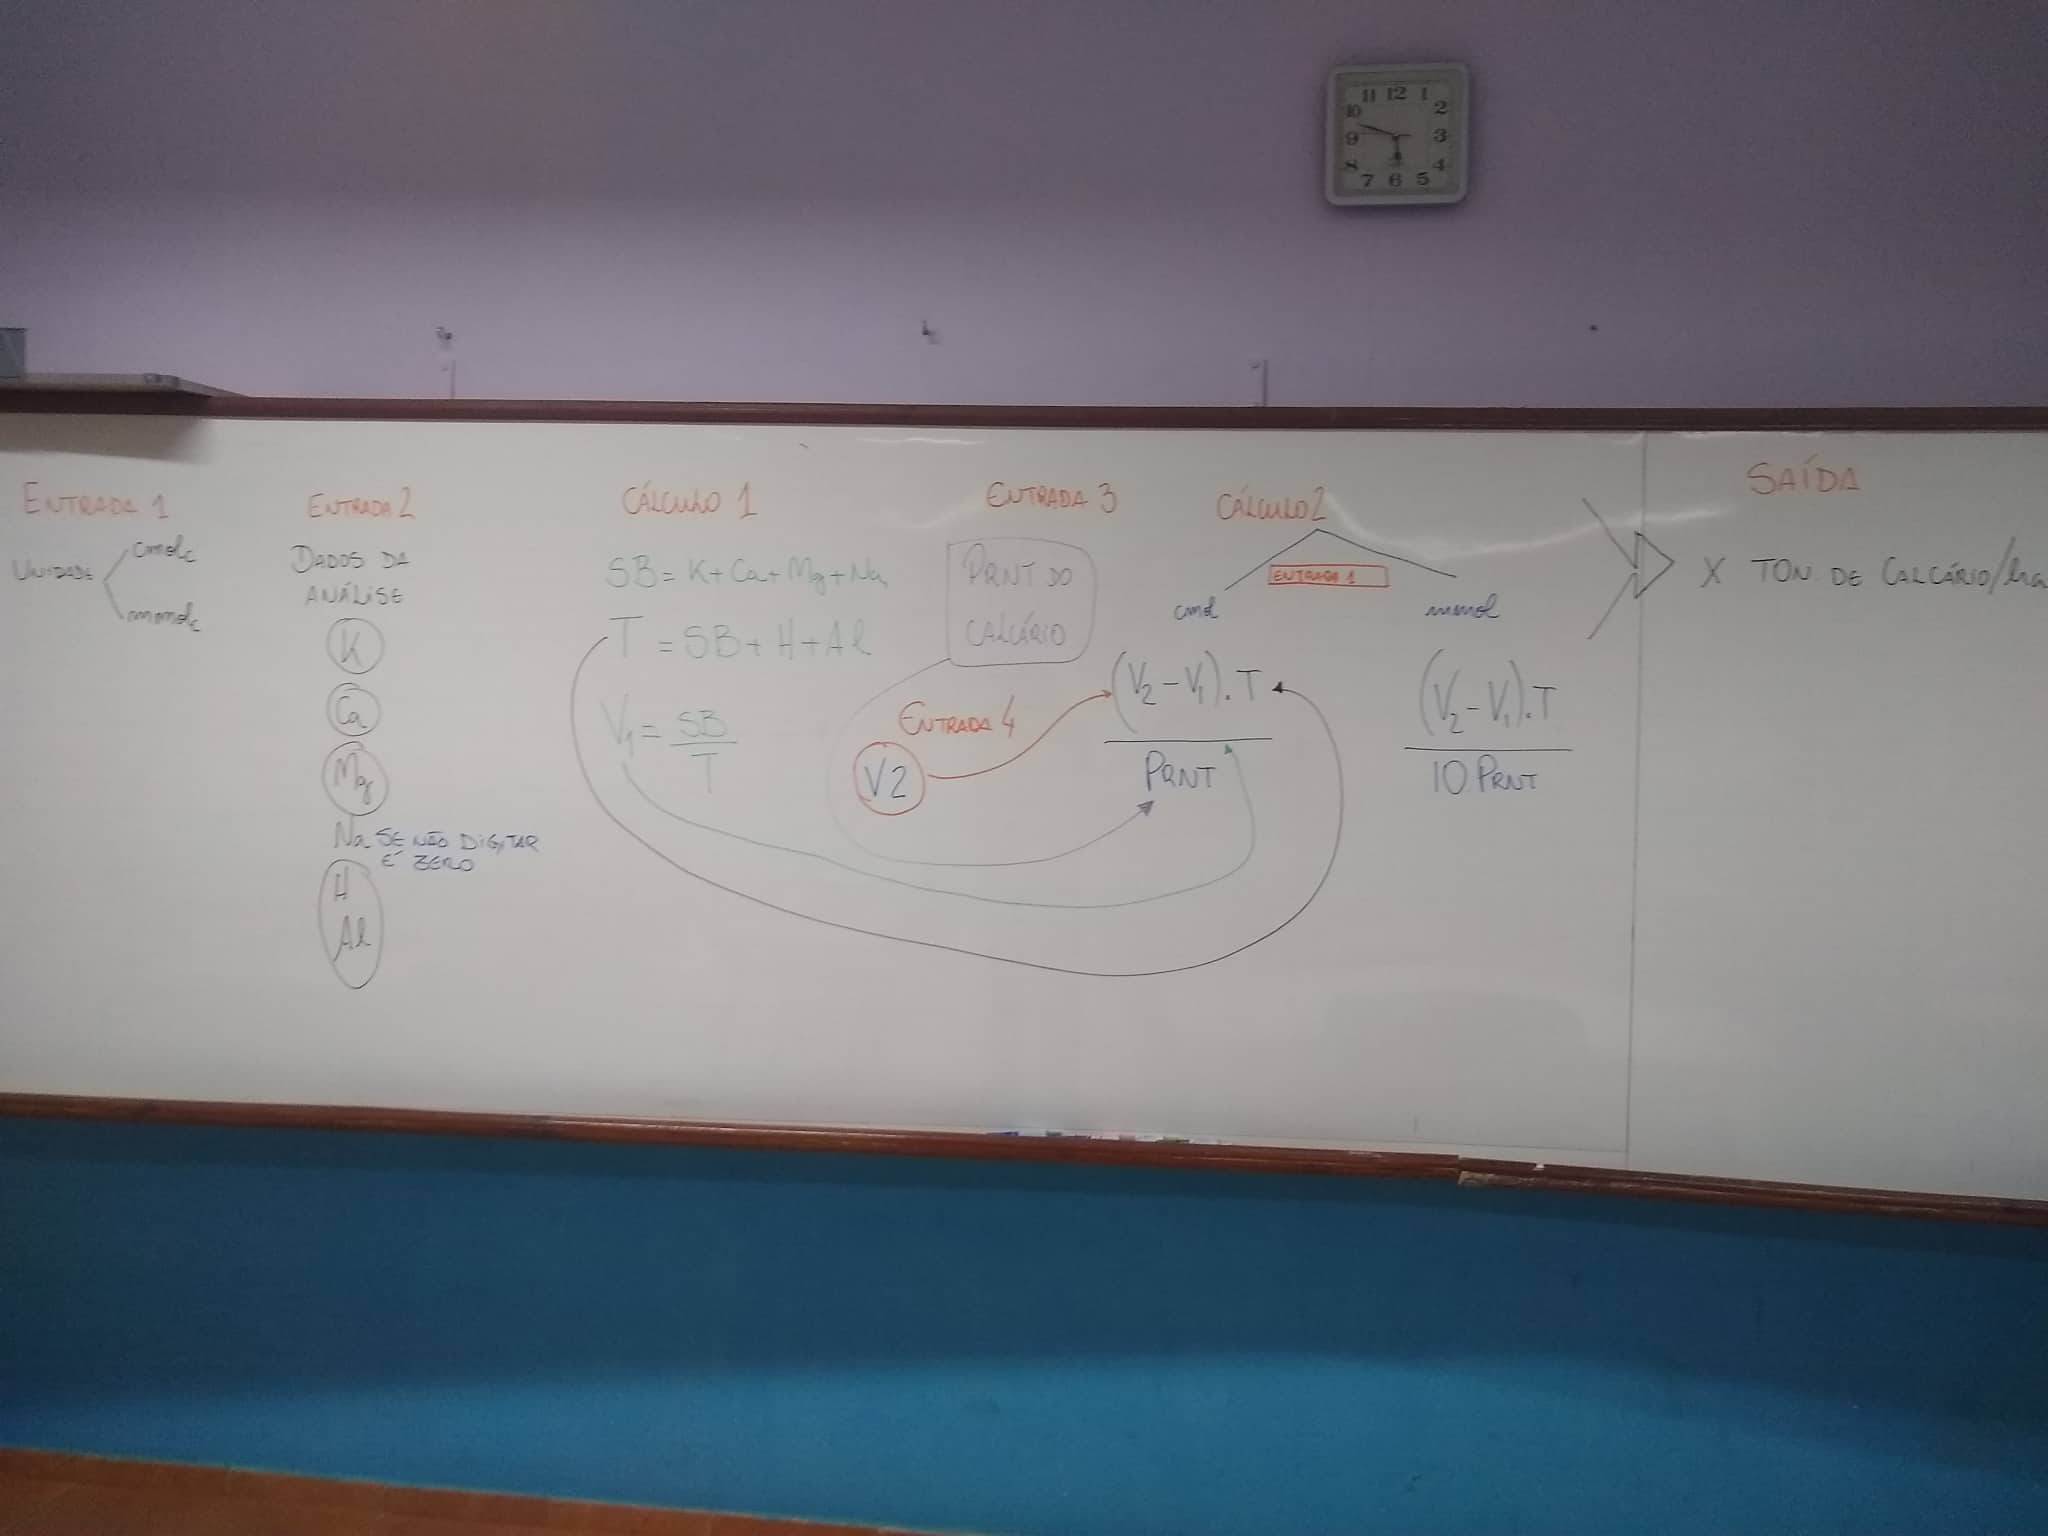 11 12 1
10 2
9 3
8 4
7 6 5
ENTRADA 1
UNIDADE
cmolc
mmolc
ENTRADA 2
DADOS DA
ANÁLISE
K
Ca
Mg
Na SE NÃO DIGITAR
É ZERO
H
Al
CÁLCULO 1
SB = K + Ca + Mg + Na
T = SB + H + Al
V₁ = SB
T
ENTRADA 3
PRNT DO
CALCÁRIO
ENTRADA 4
V2
CÁLCULO 2
ENTRADA 1
cmol
(V₂ - V₁) . T
PRNT
mmol
(V₂ - V₁) . T
10 . PRNT
SAÍDA
X TON. DE CALCÁRIO/ha